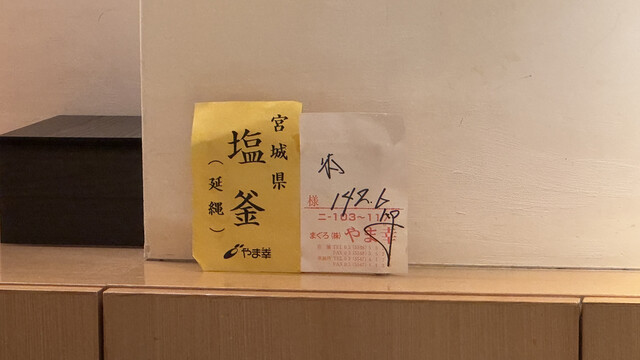 宮城県
塩釜
(延縄)
やま幸
様
142.6
ニ-103~11
まぐろ(株)やま幸